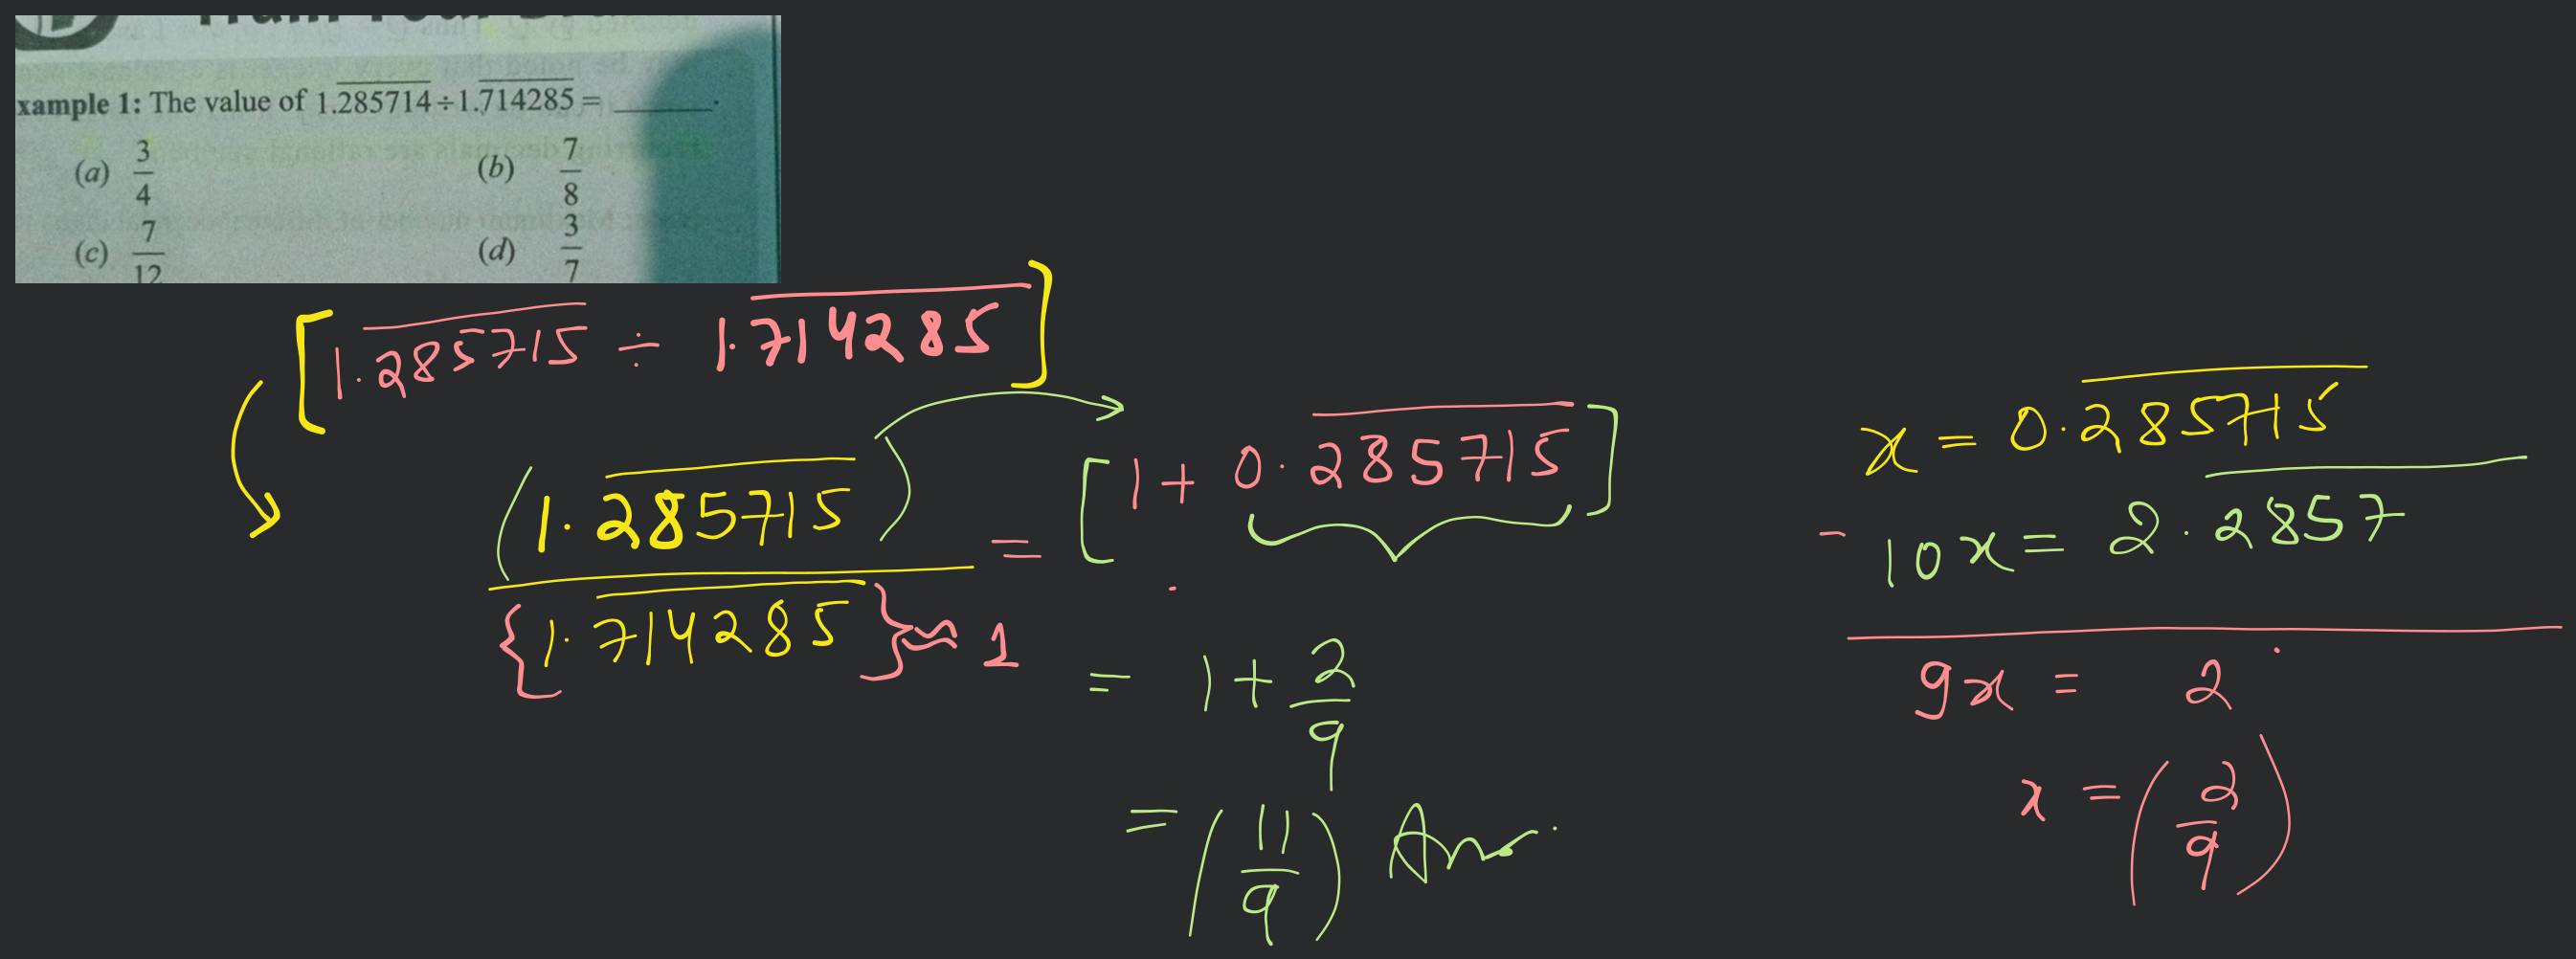 xample 1: The value of 1.\overline{285714} ÷ 1.\overline{714285} = ______.
(a) 3/4 (b) 7/8
(c) 7/12 (d) 3/7
[1.\overline{285715} ÷ 1.\overline{714285}]
(1.\overline{285715}) / {1.\overline{714285}} ≈ 1 = [1 + 0.\overline{285715}]
= 1 + 2/9
= (11/9) Ans.
x = 0.\overline{285715}
- 10x = 2.\overline{2857}
9x = 2
x = (2/9)